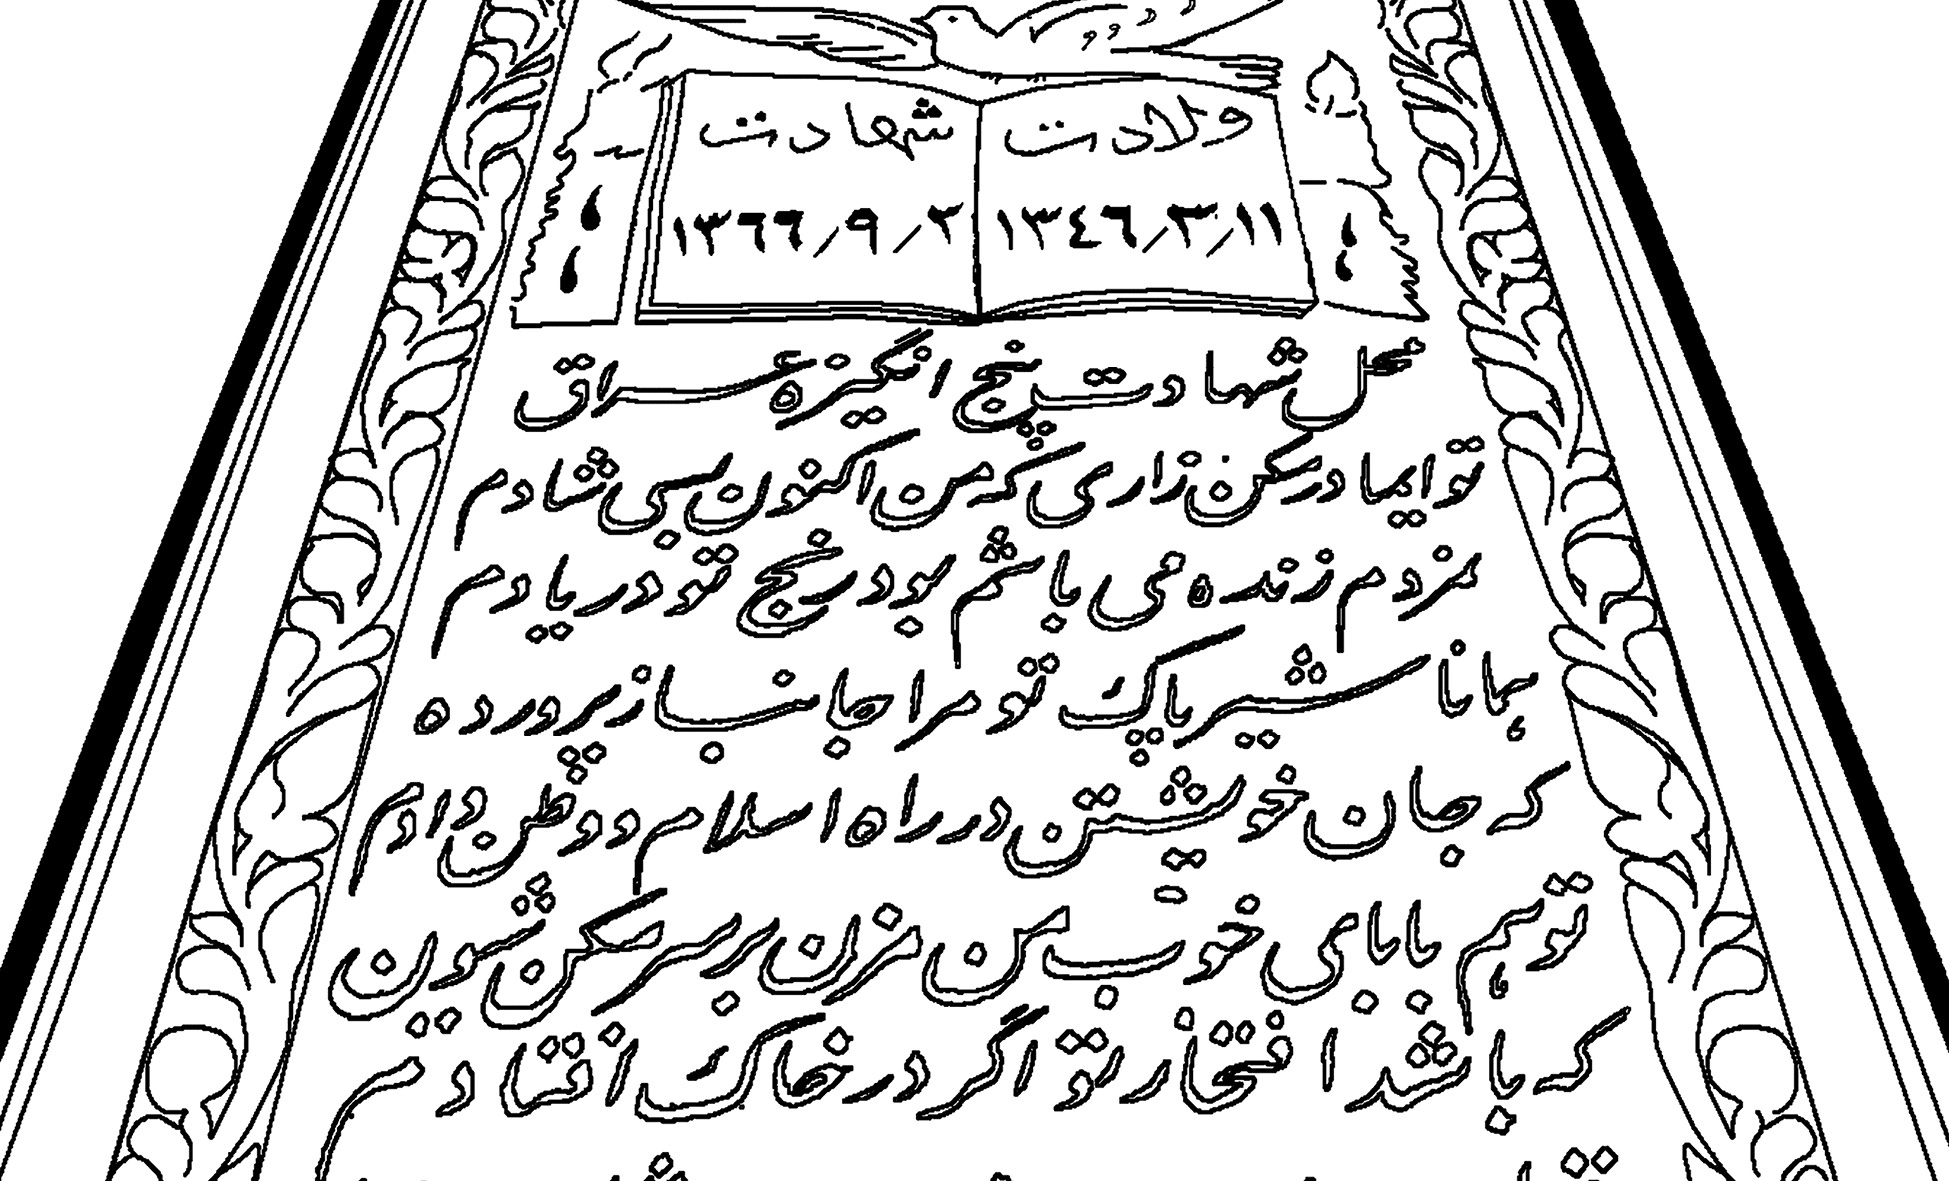 ولادت
۱۳۴۶/۳/۱۱
شهادت
۱۳۶۶/۹/۲
محل شهادت پنج انگیزه عراق
تو ایما در مکن زاری که من اکنون بسی شادم
نمردم زنده می باشم بود رنج تو در یادم
همانا شیر پاک تو مرا جانباز پرورده
که جان خویشتن در راه اسلام و وطن دادم
تو هم بابای خوب من مزن بر سر مکن شیون
که باشد افتخار تو اگر در خاک افتادم